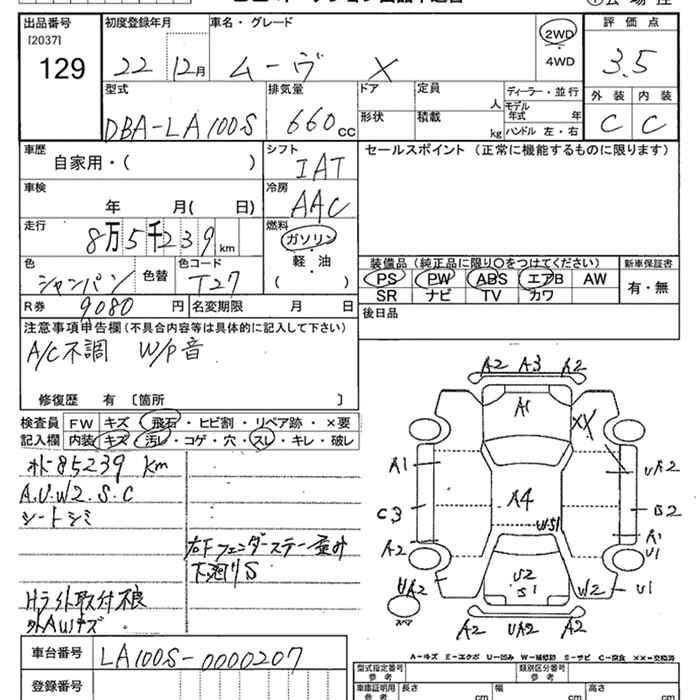 出品番号
[2037]
129
初度登録年月
22 12月
車名・グレード
ムーヴ X
2WD
・
4WD
評価点
3.5
外装 内装
C C
型式
DBA-LA100S
排気量
660cc
ドア
定員
人
ディーラー・並行
モデル年式 年
形状
積載
kg
ハンドル 左・右
車歴
自家用・( )
シフト
IAT
セールスポイント (正常に機能するものに限ります)
車検
年 月( 日)
冷房
AAC
走行
8万5千239km
燃料
ガソリン
・
軽・油
( )
色
シャンパン
色替
色コード
T27
装備品 (純正品に限り〇をつけてください)
新車保証書
PS PW ABS エアB AW
SR ナビ TV カワ
有・無
R券 9080円
名変期限 月 日
後日品
注意事項申告欄(不具合内容等は具体的に記入して下さい)
A/C不調 W/P音
修復歴 有 〔箇所 〕
検査員記入欄
FW キズ・飛石・ヒビ割・リペア跡・×要
内装 キズ・汚レ・コゲ・穴・スレ・キレ・破レ
ホト85239km
A.U.W2.S.C
シートシミ
右Fフェンダーステー歪み
下廻りS
Hライト取付不良
外AWキズ
A2 A3 A2
A1
XX
A1
UA2
C3
A4
B2
WS1
A1
U1
A2
U2
S1
UA2
W2
U1
スペア
A2 UA2 A2
A-キズ E-エクボ U-凹み W-補修跡 S-サビ C-腐食 ××-交換済
車台番号 LA100S-0000207
登録番号
型式指定番号
参考
類別区分番号
参考
車庫証明用
参考
長さ cm
幅 cm
高さ cm